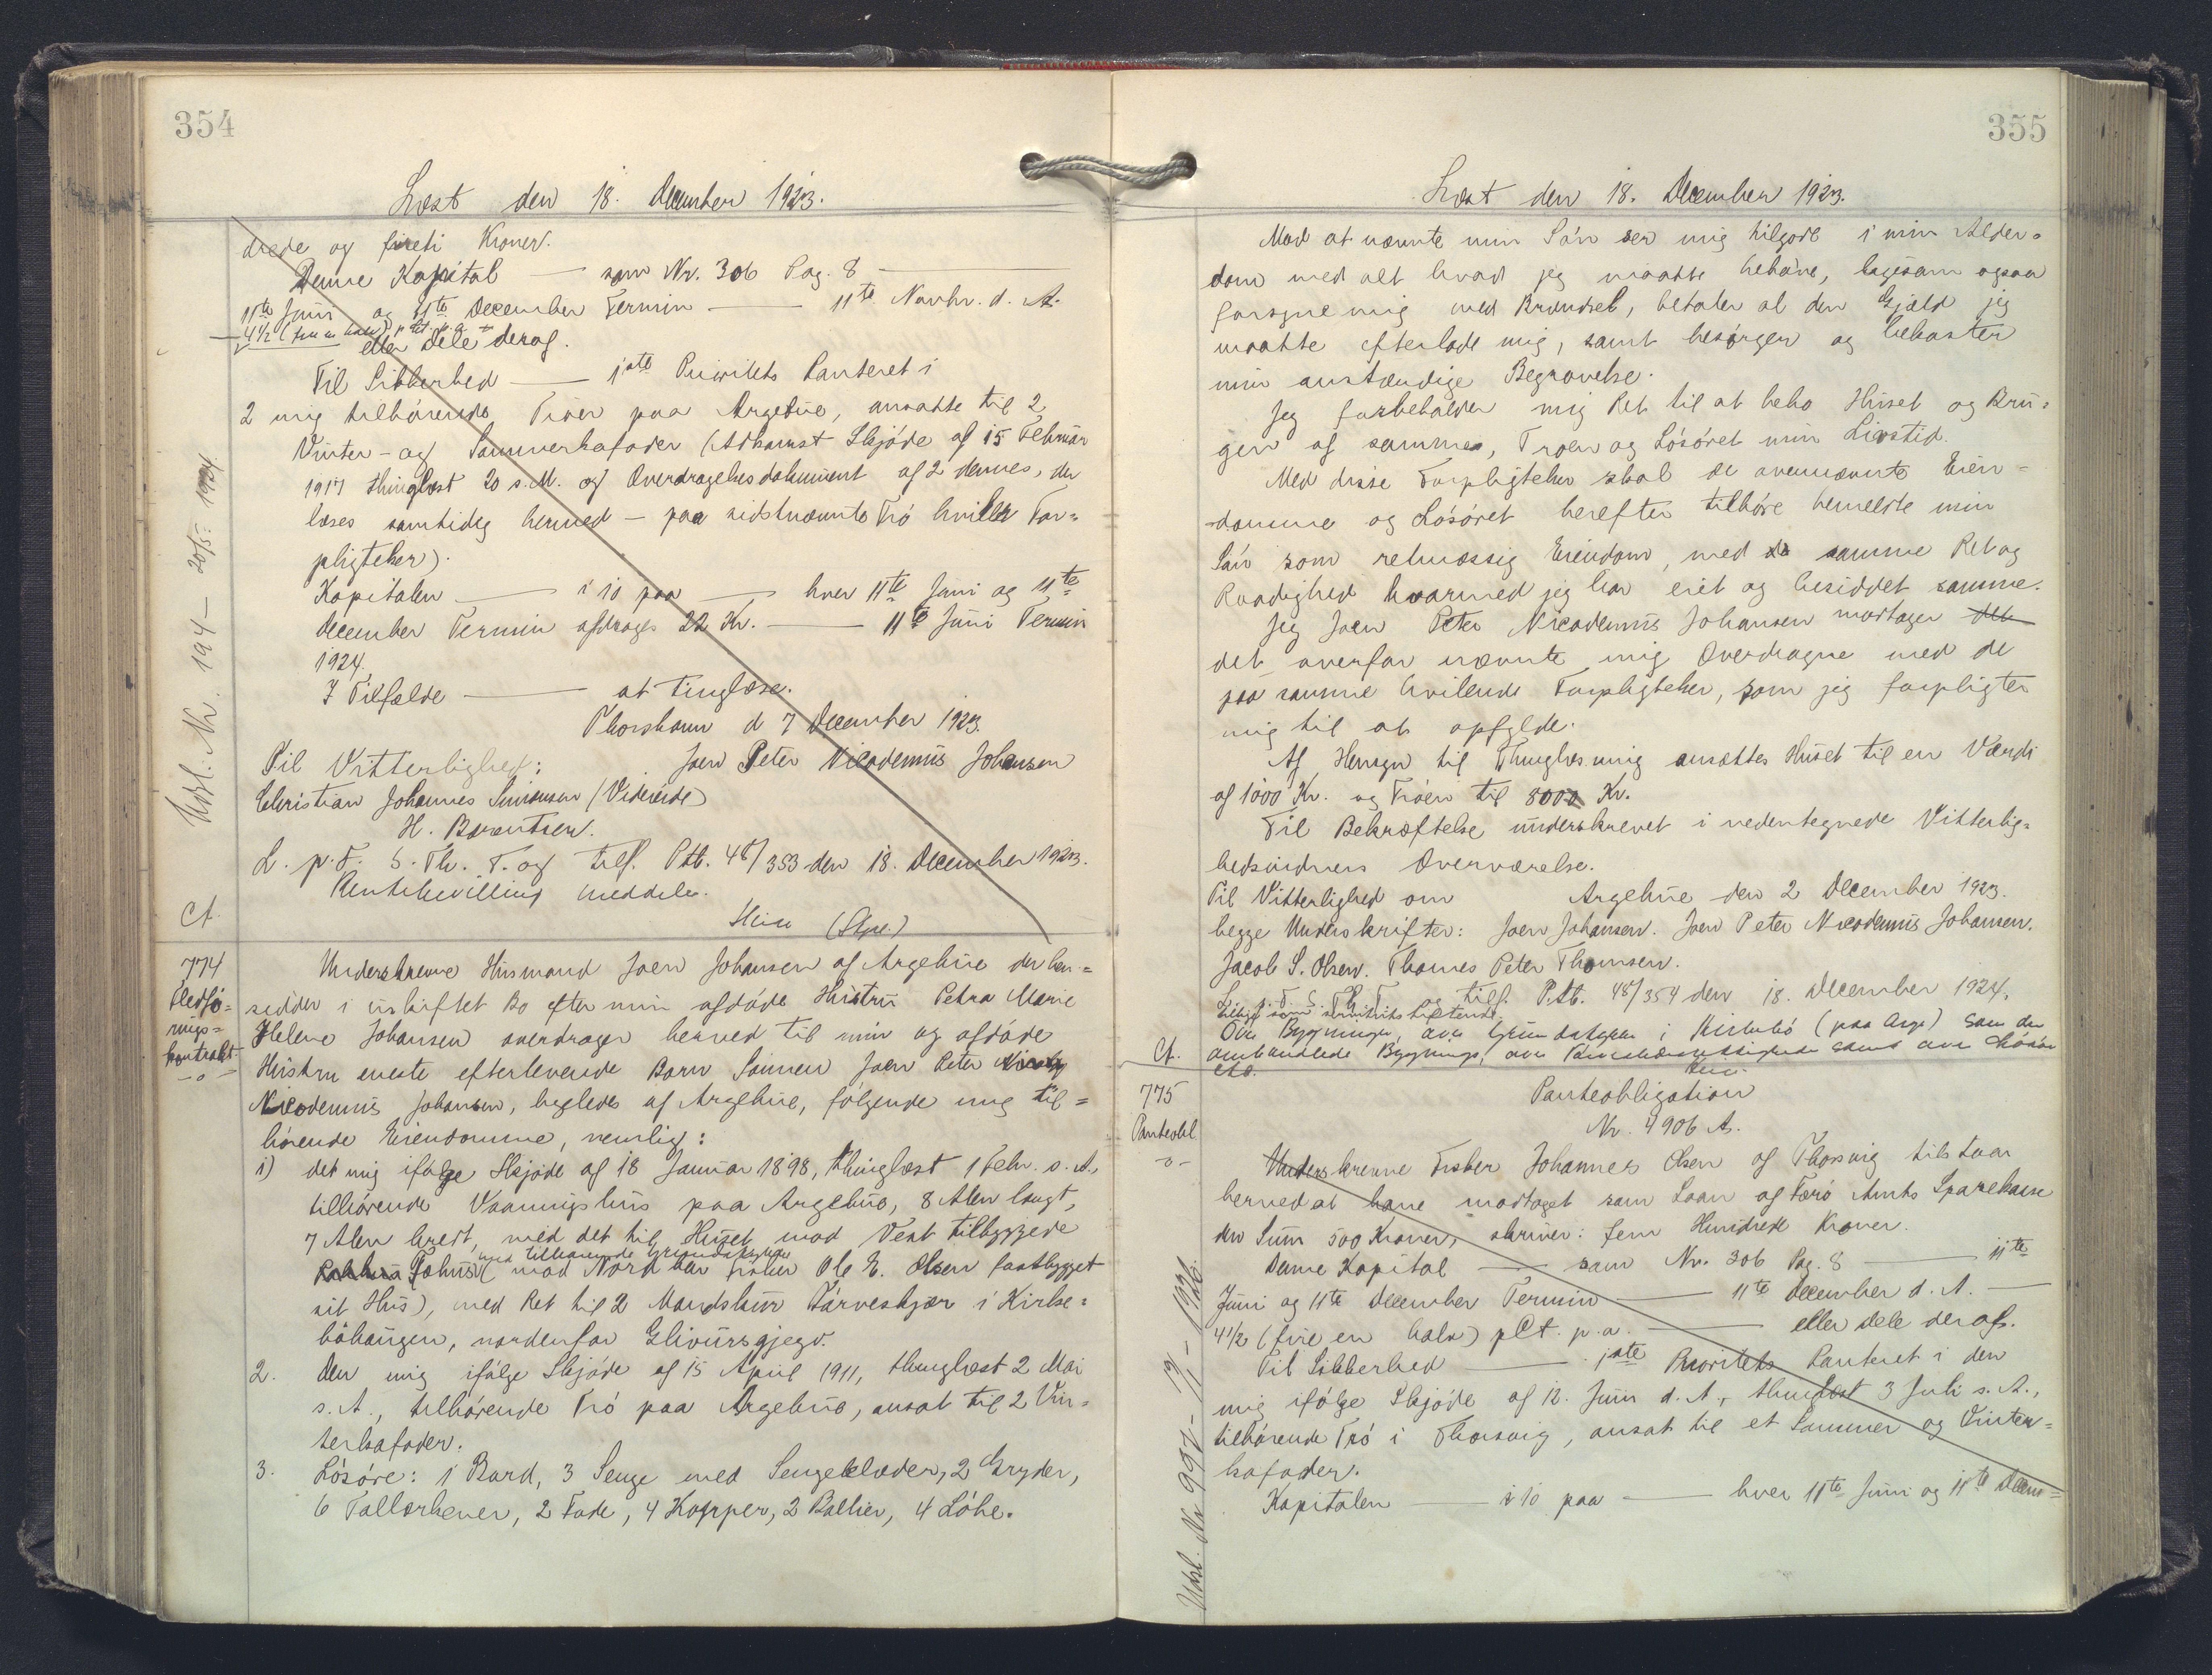 354
Læst den 18. December 1923.
drede og fireti Kroner.
Denne Kapital — som Nr. 306 Pag. 8 —
11te Juni og 11te December Termin — 11te Novbr. d. A.
— 4 1/2 (fire en halv) pCt. p. a. —
eller Dele deraf.
Til Sikkerhed — 1ste Prioritets Panteret i
2 mig tilhørende Trøer paa Argebüe, ansatte til 2
Vinter- og Sommerkofoder (Adkomst Skjøde af 15 Februar
1917 thinglæst 20 s. M. og Overdragelsesdokument af 2 dennes, der
læses samtidig hermed — paa sidstnævnte Trø hviler For=
pligtelser).
Kapitalen — i 10 paa — hver 11te Juni og 11te
December Termin afdrages 22 Kr. — 11te Juni Termin
1924.
I Tilfælde — at tinglæse.
Thorshavn d 7 December 1923.
Til Vitterlighed: Joen Peter Nicodemus Johansen
Christian Johannes Simonsen (Videreide)
H. Berentsen.
L. p. F. S. Th. T. og tilf. Ptb. 48/353 den 18. December 1923.
Rentebevilling meddeles.
Heise (Spc.)
Udsl. Nr. 194 — 20/5 1924.
Ct.
774
Fledfø=
rings=
kontrakt
—o—
Underskrevne Husmand Joen Johansen af Argebüe der hen=
sidder i uskiftet Bo efter min afdøde Hustru Petra Marie
Helene Johansen overdrager herved til min og afdøde
Hustru eneste efterlevende Barn Sønnen Joen Peter
Nicodemus Johansen, ligeledes af Argebüe, følgende mig til=
hørende Eiendomme, nemlig:
1) det mig ifølge Skjøde af 18 Januar 1898, thinglæst 1 Febr. s. A.,
tilhørende Vaaningshus paa Argebüe, 8 Alen langt,
7 Alen bredt, med det til Huset mod Vest tilbyggede
med tilhørende Grundstykke
Føhus (mod Nord har Fisker Ole E. Olsen fastbygget
sit Hus), med Ret til 2 Mandskur Tørveskjær i Kirke=
bøhaugen, nordenfor Glivursgjegv.
2. Den mig ifølge Skjøde af 15 April 1911, thinglæst 2 Mai
s. A., tilhørende Trø paa Argebüe, ansat til 2 Vin=
terkofoder.
3. Løsøre: 1 Bord, 3 Senge med Sengeklæder, 2 Gryder,
6 Tallerkener, 2 Fade, 4 Kopper, 2 Ballier, 4 Løbe.
355
Læst den 18. December 1923.
Mod at nævnte min Søn ser mig tilgode i min Alder=
dom med alt hvad jeg maatte behøve, ligesom ogsaa
forsyne mig med Brændsel, betaler al den Gjæld jeg
maatte efterlade mig, samt besørger og bekoster
min anstændige Begravelse.
Jeg forbeholder mig Ret til at bebo Huset og Bru=
gen af samme, Trøen og Løsøret min Livstid.
Med disse Forpligtelser skal de ovennævnte Eien=
domme og Løsøret herefter tilhøre bemeldte min
Søn som retmæssig Eiendom, med samme Ret og
Raadighed hvormed jeg har eiet og besiddet samme.
Jeg Joen Peter Nicodemus Johansen modtager
det overfor nævnte mig Overdragne med de
paa samme hvilende Forpligtelser, som jeg forpligter
mig til at opfylde.
Af Hensyn til Thinglæsning ansættes Huset til en Værdi
af 1000 Kr. og Trøen til 800 Kr.
Til Bekræftelse underskrevet i nedentegnede Vitterlig=
hedsvidners Overværelse.
Til Vitterlighed om Argebüe den 2 December 1923.
begge Underskrifter: Joen Johansen. Joen Peter Nicodemus Johansen.
Jacob S. Olsen. Thomas Peter Thomsen.
L. p. F. S. Th. T. og tilf. Ptb. 48/354 den 18. December 1924,
tillige som servitutstiftende
Ov. Bygningen, ov. Grundstykke i Kirkebø (paa Arge) som den
ombundlede Bygning, ov. samt ov. Løsøre
Ct.
775
Panteobl.
—o—
Panteobligation
Nr. 4906 A.
Underskrevne Fisker Johannes Olsen af Thorsvig tilstaar
herved at have modtaget som Laan af Færø Amts Sparekasse
den Sum 500 Kroner, skriver: fem Hundrede Kroner.
Denne Kapital — som Nr. 306 Pag. 8 — 11te
Juni og 11te December Termin — 11te December d. A. —
4 1/2 (fire en halv) pCt. p. a. — eller dele deraf.
Til Sikkerhed — 1ste Prioritets Panteret i den
mig ifølge Skjøde af 12. Juni d. A., thinglæst 3 Juli s. A.,
tilhørende Trø i Thorsvig, ansat til et Sommer og Vinter=
kofoder.
Kapitalen — i 10 paa — hver 11te Juni og 11te Decem=
Udsl. Nr 997 — — 1926.